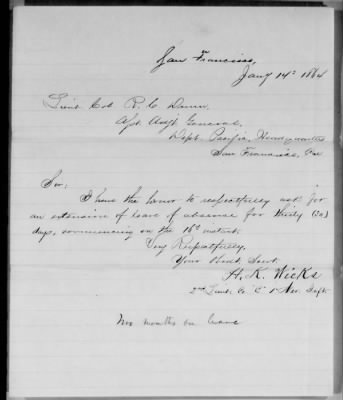 San Francisco,
Jany 14th 1864
Lieut Col R. C. Drum,
Asst Adjt General,
Dept. Pacific, Headquarters
San Francisco, Cal
Sir;
I have the honor to respectfully ask for
an extension of leave of absence for thirty (30)
days, commencing on the 16th instant.
Very Respectfully,
Your Obdt. Servt.
H. K. Wicks
2nd Lieut. Co "C" 1st Nev.
months on leave